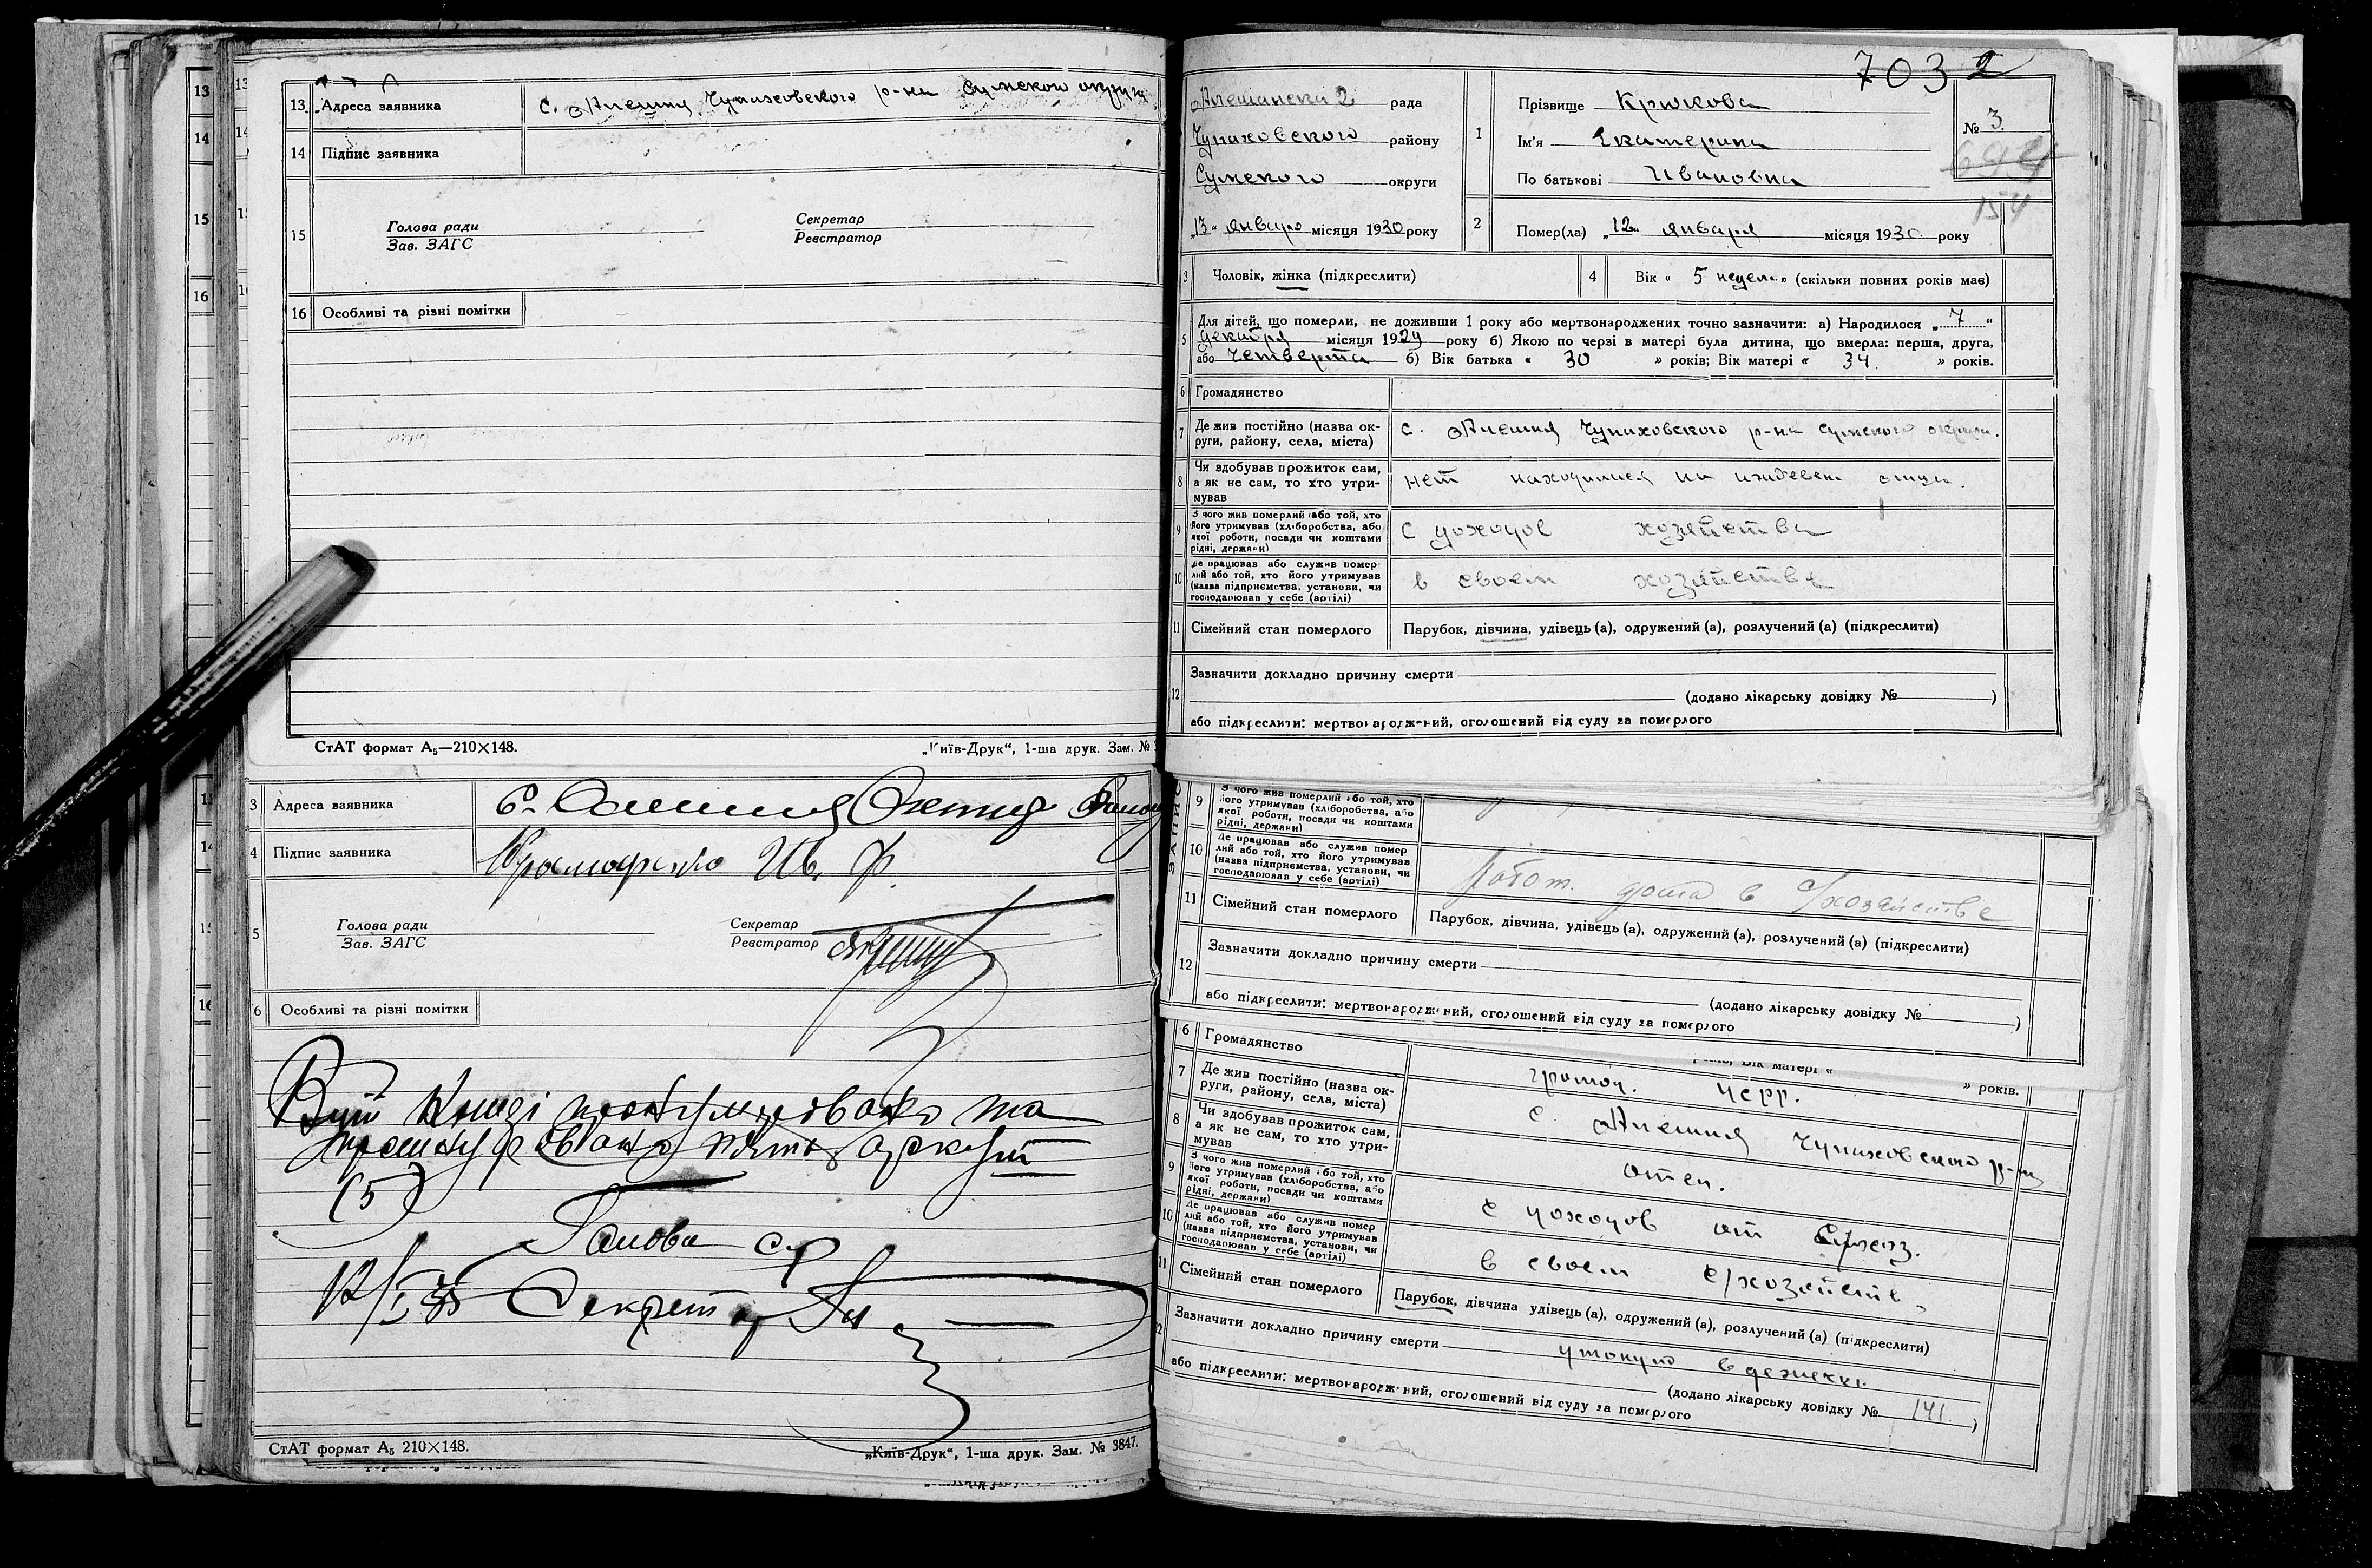 13 Адреса заявника с. Алешня Чупаховского р-на Сумского округа
14 Підпис заявника
15 Голова ради Секретар
Зав. ЗАГС Реєстратор
16 Особливі та різні помітки
СтАТ формат А5—210×148. „Київ-Друк“, 1-ша друк. Зам. №
3 Адреса заявника с.
4 Підпис заявника Ив. Ф.
5 Голова ради Секретар
Зав. ЗАГС Реєстратор
6 Особливі та різні помітки
В цій книзі пронумеровано та
прошнуровано п'ять аркушів
(5)
Голова с/р
Секретар
СтАТ формат А5 210×148. „Київ-Друк“, 1-ша друк. Зам. № 3847.
703 2
рада
Чупаховского району
Сумского округи
„13“ января місяця 1930 року
1 Прізвище Крюкова
Ім'я Екатерина
По батькові Ивановна
№ 3
694
154
2 Помер(ла) „12“ января місяця 1930 року
3 Чоловік, жінка (підкреслити) 4 Вік « 5 недель » (скільки повних років має)
5 Для дітей, що померли, не доживши 1 року або мертвонароджених точно зазначити: а) Народилося „7“
декабря місяця 1929 року б) Якою по черзі в матері була дитина, що вмерла: перша, друга,
або четверта б) Вік батька « 30 » років; Вік матері « 34 » років.
6 Громадянство
7 Де жив постійно (назва округи, району, села, міста) с. Алешня Чупаховского р-на Сумского округа.
8 Чи здобував прожиток сам, а як не сам, то хто утримував нет находилася на иждевен. отца.
9 З чого жив померлий або той, хто його утримував (хліборобства, або якої роботи, посади чи коштами рідні, держави) с доходов хозяйства
10 Де працював або служив померлий або той, хто його утримував (назва підприємства, установи, чи господарював у себе (артілі) в своем хозяйстве
11 Сімейний стан померлого Парубок, дівчина, удівець (а), одружений (а), розлучений (а) (підкреслити)
12 Зазначити докладно причину смерти
(додано лікарську довідку № )
або підкреслити: мертвонароджений, оголошений від суду за померлого
9 З чого жив померлий або той, хто його утримував (хліборобства, або якої роботи, посади чи коштами рідні, держави)
10 Де працював або служив померлий або той, хто його утримував (назва підприємства, установи, чи господарював у себе (артілі) Работ. дома в с/хозяйстве
11 Сімейний стан померлого Парубок, дівчина, удівець (а), одружений (а), розлучений (а) (підкреслити)
12 Зазначити докладно причину смерти
(додано лікарську довідку № )
або підкреслити: мертвонароджений, оголошений від суду за померлого
Вік матері « » років.
6 Громадянство громад. УСРР.
7 Де жив постійно (назва округи, району, села, міста) с. Алешня Чупаховского р-на
8 Чи здобував прожиток сам, а як не сам, то хто утримував отец.
9 З чого жив померлий або той, хто його утримував (хліборобства, або якої роботи, посади чи коштами рідні, держави) с доходов от с/хоз.
10 Де працював або служив померлий або той, хто його утримував (назва підприємства, установи, чи господарював у себе (артілі) в своем с/хозяйств.
11 Сімейний стан померлого Парубок, дівчина удівець (а), одружений (а), розлучений (а) (підкреслити)
12 Зазначити докладно причину смерти утонул в дежекке
(додано лікарську довідку № 141. )
або підкреслити: мертвонароджений, оголошений від суду за померлого